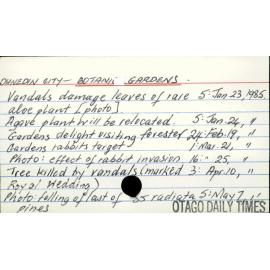 DUNEDIN CITY - BOTANIC GARDENS.
Vandals damage leaves of rare 5: Jan. 23, 1985
aloe plant [photo]
Agave plant will be relocated. 5: Jan. 24, "
Gardens delight visiting forester 24: Feb. 19, "
Gardens rabbits target 1: Mar. 21, "
Photo: effect of rabbit invasion 16: " 25, "
Tree killed by vandals (marked 3: Apr. 10, "
Royal Wedding)
Photo: felling of last of 35 radiata 5: May 7, "
pines
OTAGO DAILY TIMES